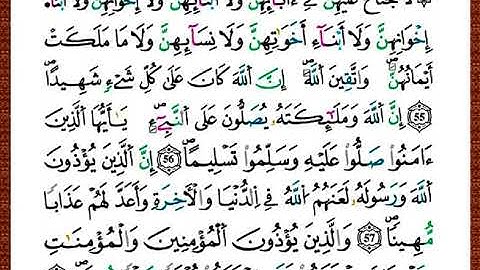 لَّا جُنَاحَ عَلَيْهِنَّ فِىٓ ءَابَآئِهِنَّ وَلَآ أَبْنَآئِهِنَّ وَلَآ إِخْوَٰنِهِنَّ وَلَآ أَبْنَآءِ
إِخْوَٰنِهِنَّ وَلَآ أَبْنَآءِ أَخَوَٰتِهِنَّ وَلَا نِسَآئِهِنَّ وَلَا مَا مَلَكَتْ
أَيْمَٰنُهُنَّ ۗ وَٱتَّقِينَ ٱللَّهَ ۚ إِنَّ ٱللَّهَ كَانَ عَلَىٰ كُلِّ شَىْءٍ شَهِيدًا
55 إِنَّ ٱللَّهَ وَمَلَٰٓئِكَتَهُۥ يُصَلُّونَ عَلَى ٱلنَّبِىِّ ۚ يَٰٓأَيُّهَا ٱلَّذِينَ
ءَامَنُوا۟ صَلُّوا۟ عَلَيْهِ وَسَلِّمُوا۟ تَسْلِيمًا 56 إِنَّ ٱلَّذِينَ يُؤْذُونَ
ٱللَّهَ وَرَسُولَهُۥ لَعَنَهُمُ ٱللَّهُ فِى ٱلدُّنْيَا وَٱلْءَاخِرَةِ وَأَعَدَّ لَهُمْ عَذَابًا
مُّهِينًا 57 وَٱلَّذِينَ يُؤْذُونَ ٱلْمُؤْمِنِينَ وَٱلْمُؤْمِنَٰتِ